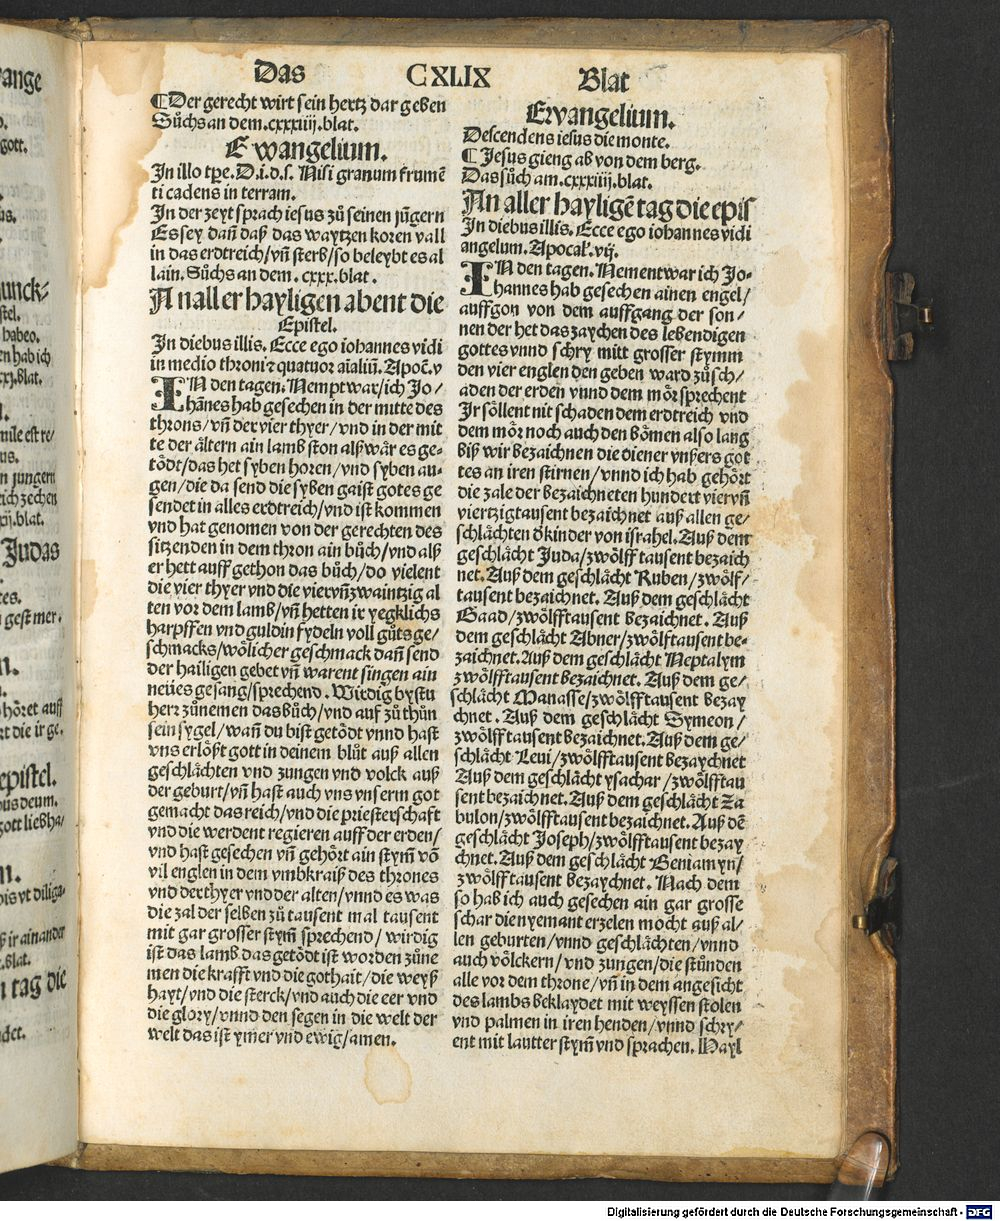 Das CXLIX Blat
¶Der gerecht wirt sein hertz dar geben
Sůchs an dem .cxxxiiij. blat.
Ewangelium.
In illo tp̄e. D.i.d.s. Nisi granum frumē
ti cadens in terram.
In der zeyt sprach iesus zů seinen jūgern
Es sey dañ daß das waytzen koren vall
in das erdtreich/vñ sterb/so beleybt es al
lain. Sůchs an dem . cxxx. blat .
An aller hayligen abent die
Epistel.
In diebus illis. Ecce ego iohannes vidi
in medio throni ⁊ quatuor aīaliū. Apoc̄. v
IN den tagen. Nempt war/ich Jo/
hānes hab gesechen in der mitte des
throns/vñ der vier thyer/vnd in der mit
te der ältern ain lamb ston alß wär es ge-
tödt/das het syben horen/vnd syben au-
gen/die da send die syben gaist gotes ge
sendet in alles erdtreich/vnd ist kommen
vnd hat genomen von der gerechten des
sitzenden in dem thron ain bůch/vnd alß
er hett auff gethon das bůch/do vielent
die vier thyer vnd die viervñzwaintzig al
ten vor dem lamb/vñ hetten ir yegklichs
harpffen vnd guldin fydeln voll gůts ge/
schmacks/wölicher geschmack dañ send
der hailigen gebet vñ warent singen ain
neües gesang/sprechend. Wirdig bystu
herr zůnemen das bůch/vnd auf zů thůn
sein sygel/wañ du bist getödt vnnd hast
vns erlößt gott in deinem blůt auß allen
geschlächten vnd zungen vnd volck auß
der geburt/vñ hast auch vns vnserm got
gemacht das reich/vnd die priesterschaft
vnd die werdent regieren auff der erden/
vnd hast gesechen vñ gehört ain stym̄ vō
vil englen in dem vmbkraiß des thrones
vnd der thyer vnd der alten/vnnd es was
die zal der selben zů tausent mal tausent
mit gar grosser stym̄ sprechend/ wirdig
ist das lamb das getödt ist worden zůne
men die krafft vnd die gothait/die weyß
hayt/vnd die sterck/vnd auch die eer vnd
die glory/vnnd den segen in die welt der
welt das ist ymer vnd ewig/amen.
Ewangelium.
Descendens iesus die monte.
¶ Jesus gieng ab von dem berg.
Das sůch am .cxxxiiij. blat.
An aller hayligē tag die epis
In diebus illis. Ecce ego iohannes vidi
angelum. Apocal̄. vij.
IN den tagen. Nement war ich Jo-
hannes hab gesechen ainen engel/
auffgon von dem auffgang der son/
nen der het das zaychen des lebendigen
gottes vnnd schry mitt grosser stymm
den vier englen den geben ward zůsch/
aden der erden vnnd dem mör sprechent
Jr söllent nit schaden dem erdtreich vnd
dem mör noch auch den bömen also lang
biß wir bezaichnen die diener vnßers got
tes an iren stirnen/vnnd ich hab gehört
die zale der bezaichneten hundert viervñ
viertzigtausent bezaichnet auß allen ge/
schlächten d̄ kinder von israhel. Auß dem
geschlächt Juda/zwölff tausent bezaich
net. Auß dem geschlächt Ruben/zwölf/
tausent bezaichnet. Auß dem geschlächt
Gaad/zwölfftausent bezaichnet . Auß
dem geschlächt Abner/zwölftausent be-
zaichnet. Auß dem geschlächt Neptalym
zwölfftausent bezaichnet. Auß dem ge/
schlächt Manasse/zwölfftausent bezay
chnet . Auß dem geschlächt Symeon/
zwölfftausent bezaichnet. Auß dem ge/
schlächt Leui/zwölfftausent bezaychnet
Auß dem geschlächt ysachar /zwölfftau
sent bezaichnet. Auß dem geschlächt Za
bulon/zwölfftausent bezaichnet. Auß dē
geschlächt Joseph/zwölfftausent bezay
chnet. Auß dem geschlächt Beniamyn/
zwölfftausent bezaychnet. Nach dem
so hab ich auch gesechen ain gar grosse
schar die nyemant erzelen mocht auß al/
len geburten/vnnd geschlächten/vnnd
auch völckern/vnd zungen/die stůnden
alle vor dem throne/vñ in dem angesicht
des lambs beklaydet mit weyssen stolen
vnd palmen in iren henden/vnnd schry/
ent mit lautter stym̄ vnd sprachen. Hayl
Digitalisierung gefördert durch die Deutsche Forschungsgemeinschaft - DFG